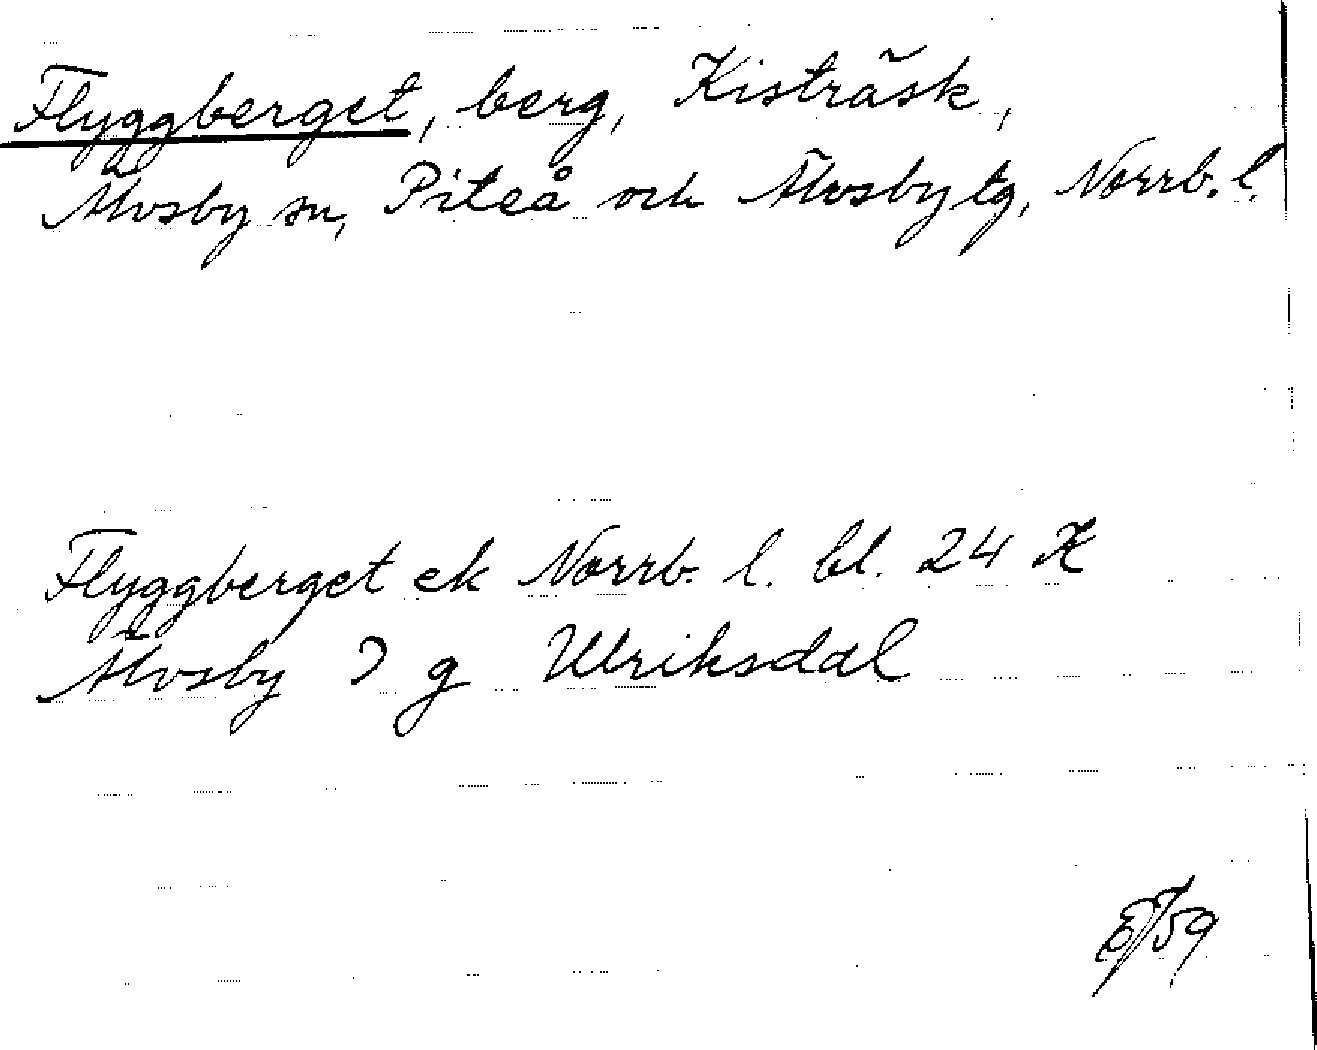 Flyggberget, berg, Kisträsk,
Älvsby sn, Piteå och Älvsby tg, Norrb. l.
Flyggberget ek Norrb. l. bl. 24 X
Älvsby J g Ulriksdal
/59